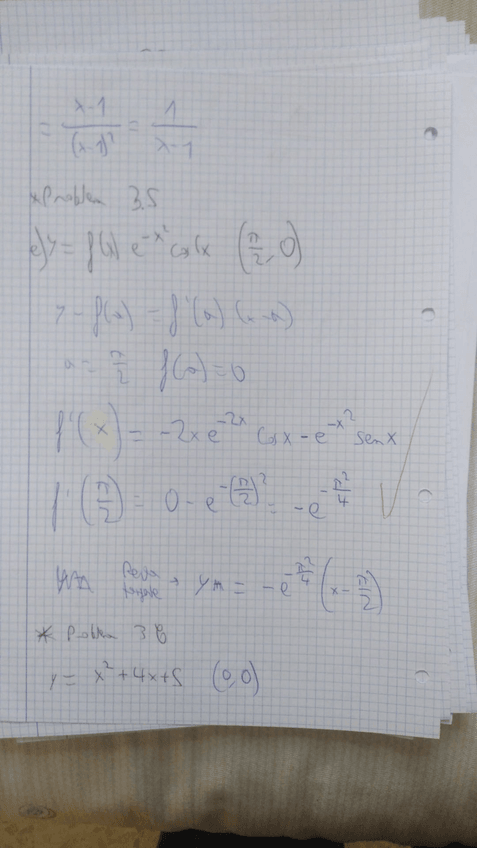 = \frac{x-1}{(x-1)^2} = \frac{1}{x-1}
*Problem 3.5
e) y = f(x) e^{-x^2} cos x (\frac{π}{2}, 0)
y - f(a) = f'(a) (x-a)
a = \frac{π}{2} f(a) = 0
f'(x) = -2x e^{-2x} cos x - e^{-x^2} sen x
f'(\frac{π}{2}) = 0 - e^{-(\frac{π}{2})^2} = -e^{-\frac{π^2}{4}}
Recta → = -e^{-\frac{π^2}{4}} (x - \frac{π}{2})
* Problem 3.6
y = x^2 + 4x + 5 (0,0)